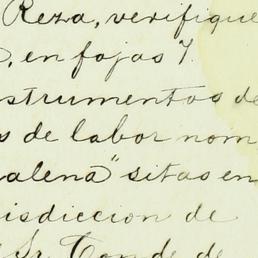 Reza, verifique
, en fojas 7.
nstrumentos de
s de labor nom
alena" sitas en
isdiccion de
Sr. Conde de